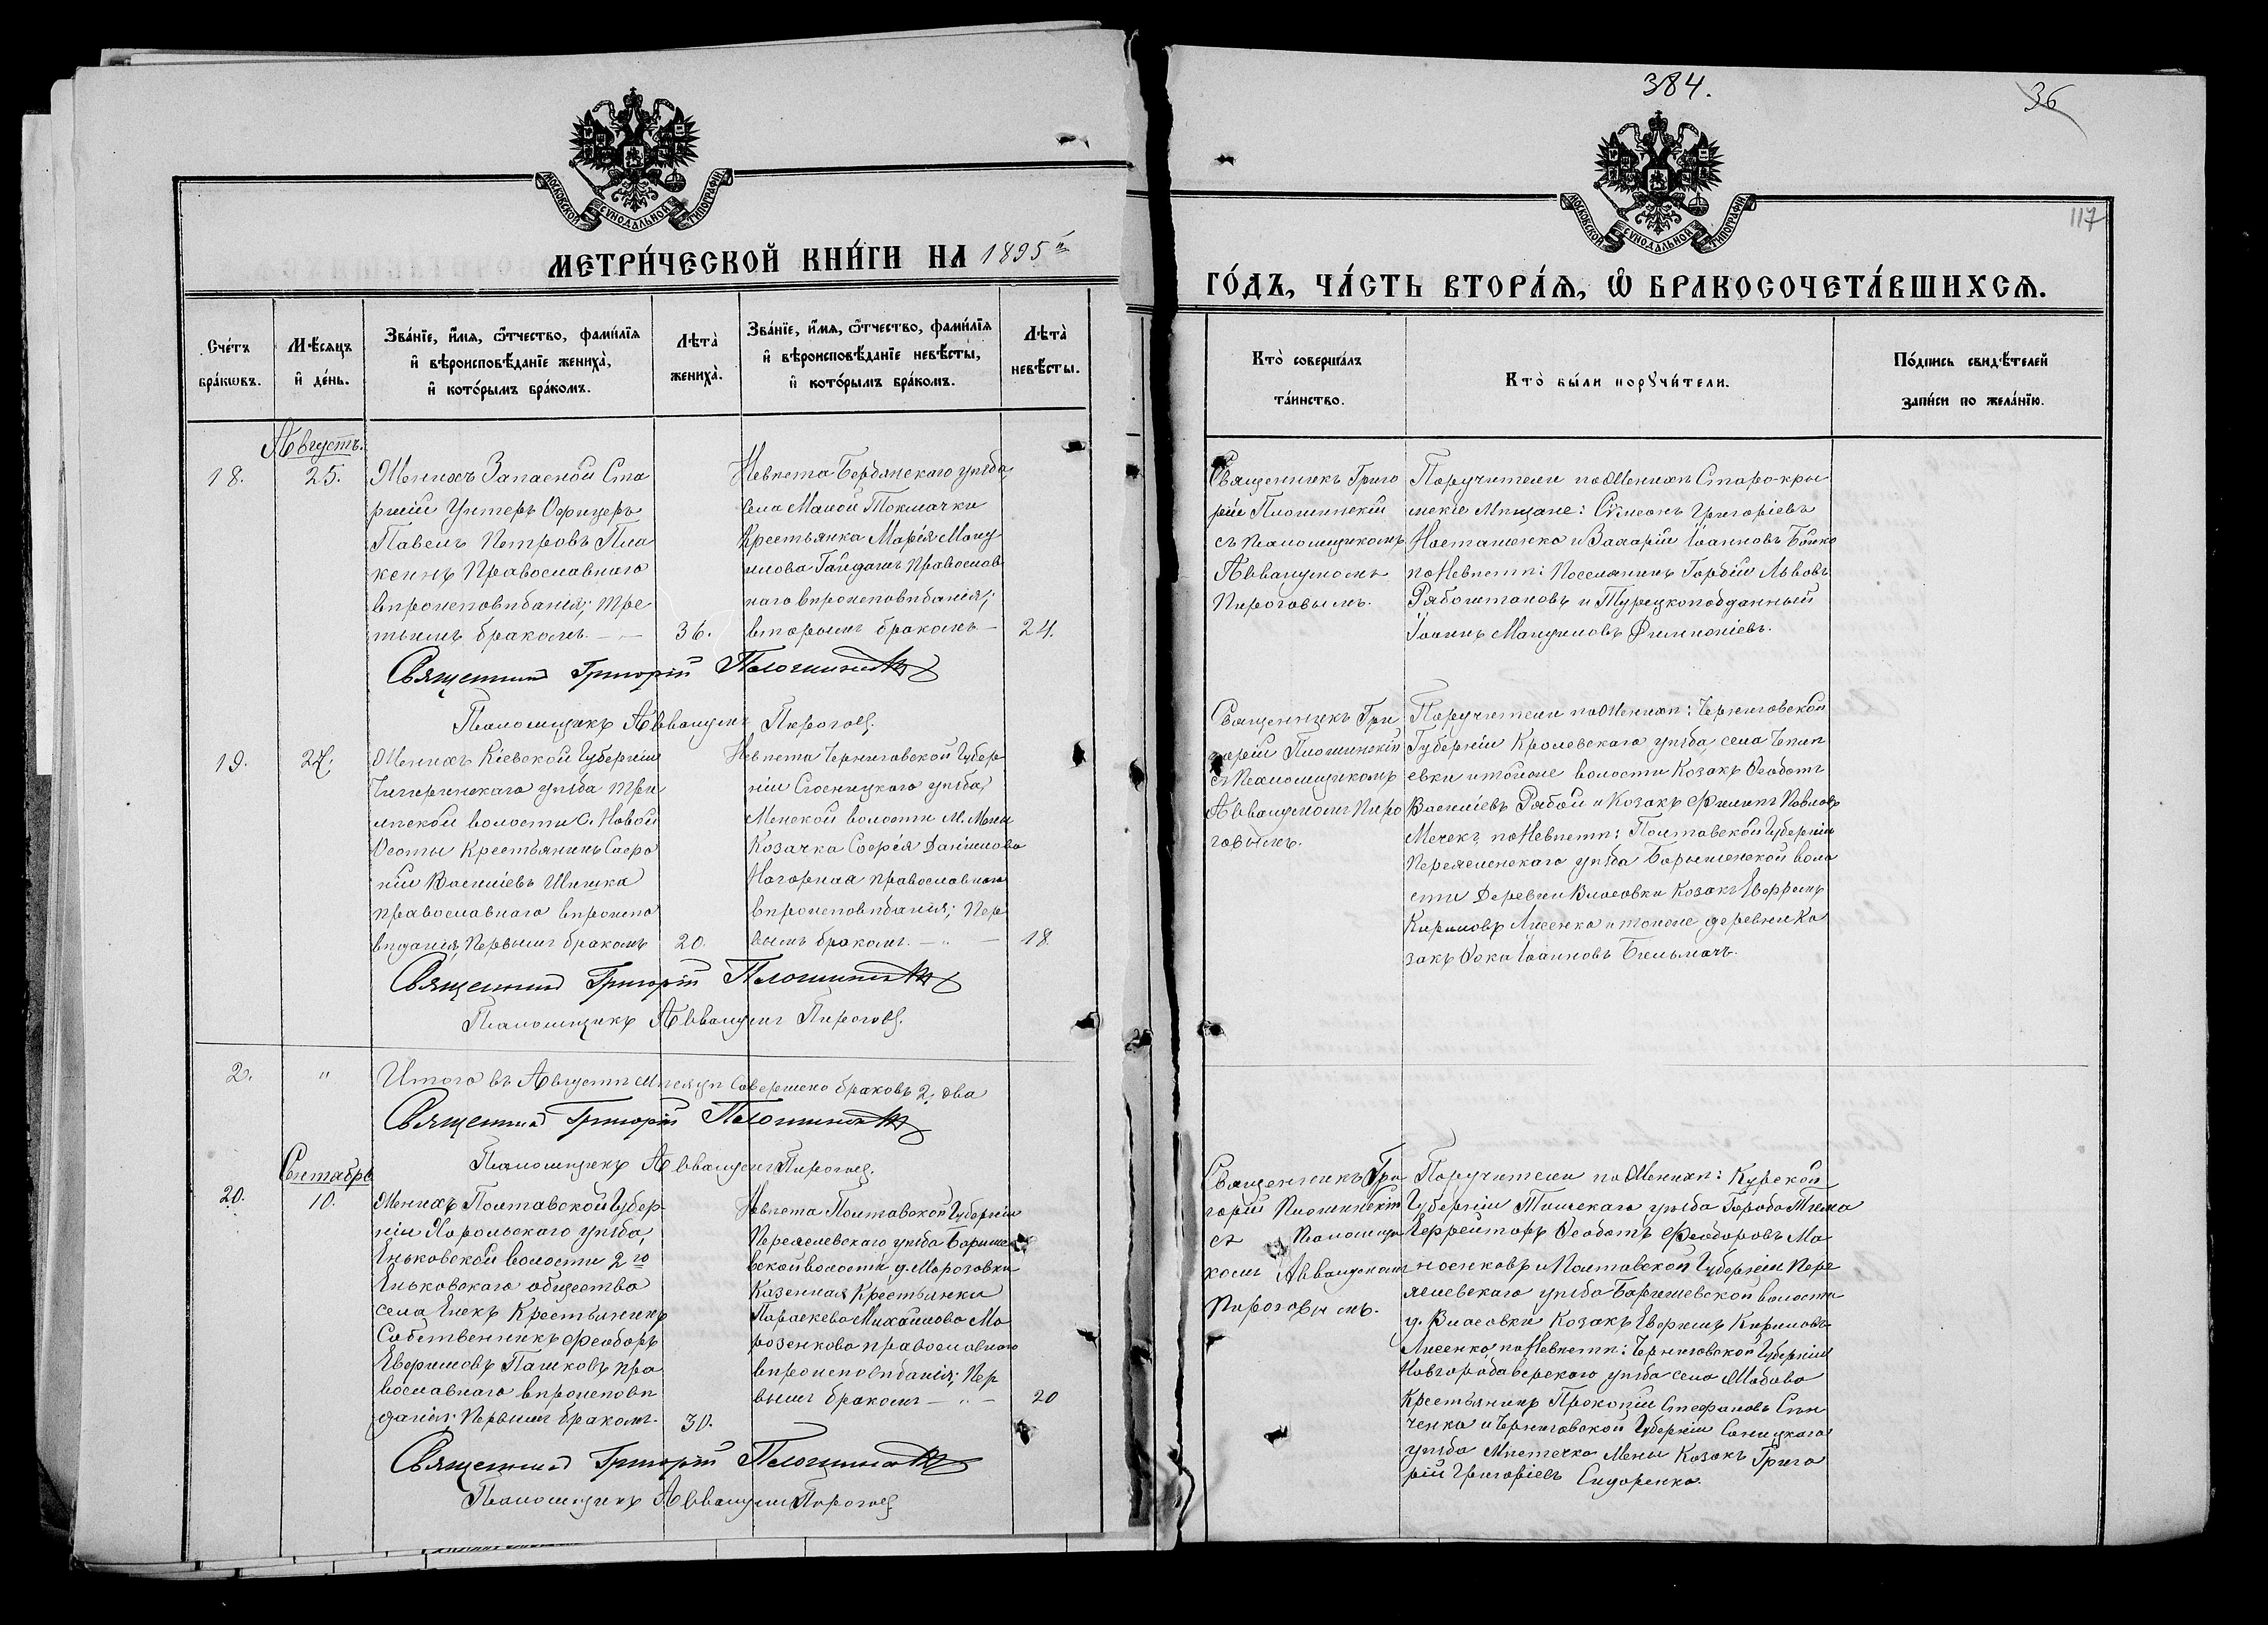 384.
36
117
МОСКОВСКОЙ СУНОДАЛЬНОЙ ТИПОГРАФІИ
МОСКОВСКОЙ СУНОДАЛЬНОЙ ТИПОГРАФІИ
МЕТРИ́ЧЕСКОЙ КНИ́ГИ НА 1895й
ГО́ДЪ, ЧА́СТЬ ВТОРА́Я, Ѡ БРАКОСОЧЕТА́ВШИХСЯ.
Сче́тъ
бра́кѡвъ.
Мѣ́сяцъ
и҆ де́нь.
Зва́нїе, и҆́мя, ѻ҆́тчество, фами́лїя
и҆ вѣроисповѣ́данїе жениха̀,
и҆ кото́рымъ бра́комъ.
Лѣта̀
жениха̀.
Зва́нїе, и҆́мя, ѻ҆́тчество, фами́лїя
и҆ вѣроисповѣ́данїе невѣ́сты,
и҆ кото́рымъ бра́комъ.
Лѣта̀
невѣ́сты.
Кто̀ соверша́лъ
та́инство.
Кто̀ бы́ли порꙋчи́тели.
По́дпись свидѣ́телей
за́писи по жела́нїю.
Августъ.
18.
25.
Женихъ Запасной Ста
ршій Унтеръ Офицеръ
Павелъ Петровъ Пла
ксинъ Православнаго
вѣроисповѣданія; тре
тьимъ бракомъ.
36.
Невѣста Бердянскаго уѣзда,
села Малой Токмачки
Крестьянка Марія Ману
илова Гайдашъ Православ
наго вѣроисповѣданія;
вторымъ бракомъ
24.
Священникъ Григо
рій Плошинскій
съ Псаломщикомъ
Аввакумомъ
Пироговымъ.
Поручители по Женихѣ Старо-кры
мскіе Мѣщане: Сѵмеонъ Григоріевъ
и Захарій Іоанновъ Бойко
по Невѣстѣ: Поселянинъ Гордій Львовъ
Рябоштановъ и Турецкоподданный
Іоаннъ Мануиловъ
Священникъ Григорій Плошинскій
Псаломщикъ Аввакумъ Пироговъ.
19.
27.
Женихъ Кіевской Губерніи
Чигиринскаго уѣзда Три
лѣской волости С. Новой
Осоты Крестьянинъ Софро
ній Василіевъ Шишка
православнаго вѣроиспо
вѣданія, Первымъ бракомъ
20.
Невѣста Черниговской Губер
ніи Сосницкаго уѣзда,
Менской волости М. Мены
Козачка Софія Даніилова
Нагорная православнаго
вѣроисповѣданія; Пер
вымъ бракомъ.
18.
Священникъ Гри
горій Плошинскій
съ Псаломщикомъ
Аввакумомъ Пиро
говымъ.
Поручители по Женихѣ: Черниговской
Губерніи Кролевскаго уѣзда, села Чепл
евки и тойже волости Козакъ Ѳеодотъ
Василіевъ Рябой и Козакъ Филипъ Павловъ
по Невѣстѣ: Полтавской Губерніи
Переяславскаго уѣзда Барышевской воло
сти Деревни Власовки Козакъ Ефремъ
Кириловъ Лисенко и тойже деревни Ка
закъ Ѳока Іоанновъ
Священникъ Григорій Плошинскій
Псаломщикъ Аввакумъ Пироговъ.
2. " Итого въ Августѣ мѣсяцѣ совершено браковъ 2. два
Священникъ Григорій Плошинскій
Псаломщикъ Аввакумъ Пироговъ.
Сентябрь
20.
10.
Женихъ Полтавской Губер
ніи Хорольскаго уѣзда,
Еньковской волости 2го
Еньковскаго общества
села Енекъ Крестьянинъ
Собственникъ Феодоръ
Евфимовъ Пашковъ пра
вославнаго вѣроисповѣ
данія; Первымъ бракомъ.
30.
Невѣста Полтавской Губерніи
Переяславскаго уѣзда Барыше
вской волости д. Морозовки
Казенная Крестьянка
Параскева Михайлова Мо
розенкова православнаго
вѣроисповѣданія; Пер
вымъ бракомъ
20
Священникъ Гри
горій Плошинскій
съ Псаломщи
комъ Аввакумомъ
Пироговымъ.
Поручители по Женихѣ: Курской
Губерніи Тимскаго уѣзда Города Тима
Ефрейторъ Ѳеодотъ Феодоровъ Ма
носнковъ и Полтавской Губерніи Пере
яславскаго уѣзда Барышевской волости
д. Власовки Козакъ Кириловъ
Лисенко, по Невѣстѣ: Черниговской Губерніи
Новгородсѣверскаго уѣзда села
Крестьянинъ Прокопій Стефановъ
и Черниговской Губерніи Сосницкаго
уѣзда Мѣстечка Мены Козакъ Григо
рій Григоріевъ Сидоренко.
Священникъ Григорій Плошинскій
Псаломщикъ Аввакумъ Пироговъ